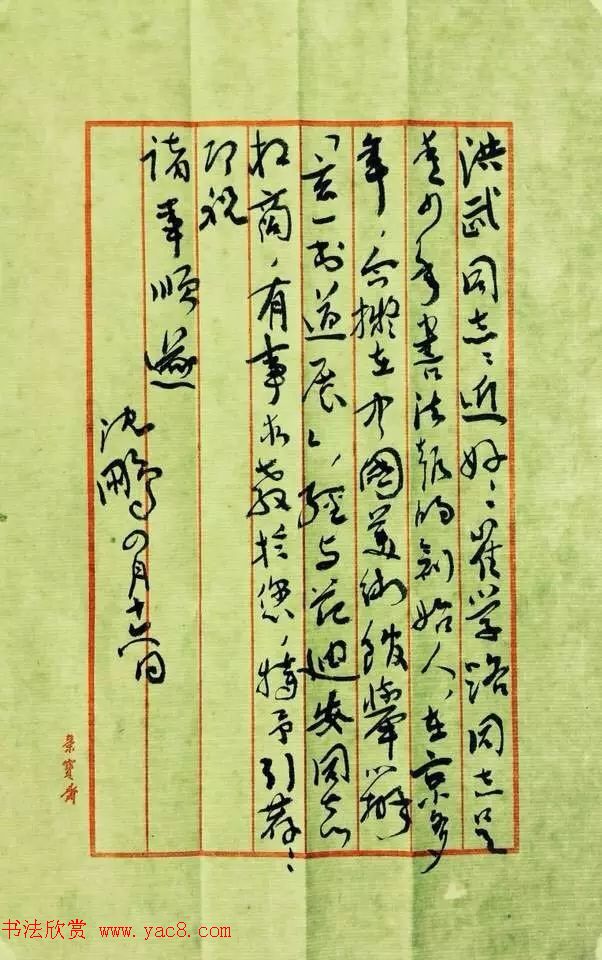 洪武同志：近好：崔学路同志是
青少年书法报的创始人，在京多
年，今擬在中國美術館舉辦
「玄一书道展」，經与范迪安同志
相商，有事求教於您，特予引荐：
即祝
诸事順遂
沈鹏 四月十六日
榮寶齋
书法欣赏 www.yac8.com